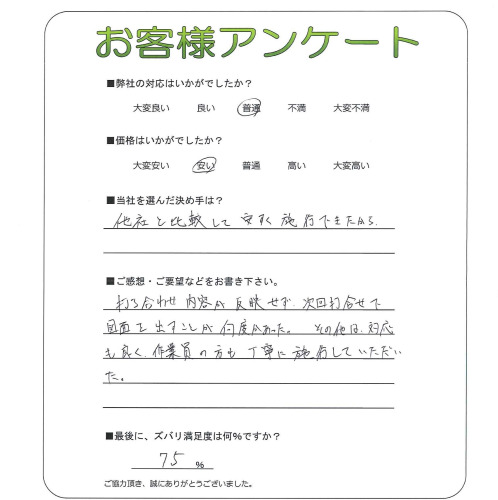 お客様アンケート
■弊社の対応はいかがでしたか？
大変良い 良い 普通 不満 大変不満
■価格はいかがでしたか？
大変安い 安い 普通 高い 大変高い
■当社を選んだ決め手は？
他社と比較して安く施行できたから.
■ご感想・ご要望などをお書き下さい。
打ち合わせ内容が反映せず次回打合せで
図面を出すことが何度かあった。その他は、対応
も良く、作業員の方も丁寧に施行していただい
た。
■最後に、ズバリ満足度は何%ですか？
75 %
ご協力頂き、誠にありがとうございました。